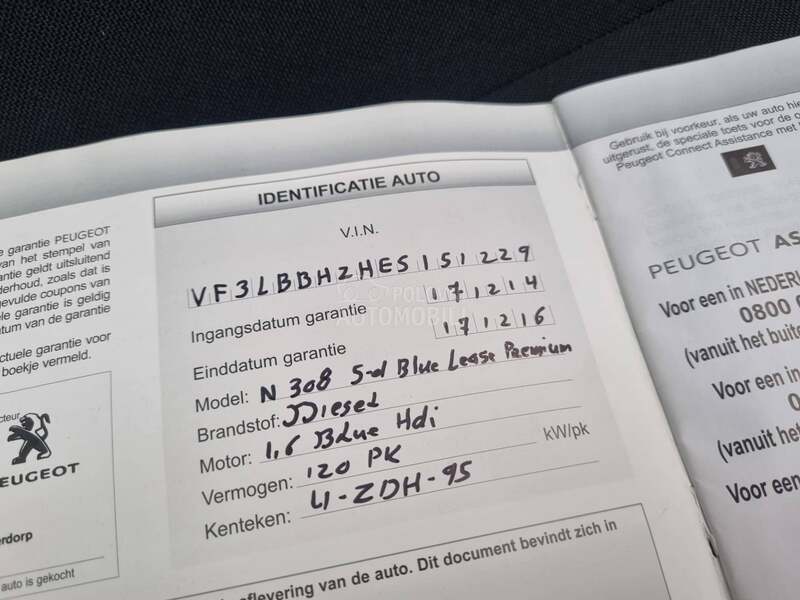 e garantie PEUGEOT
van het stempel van
antie geldt uitsluitend
derhoud, zoals dat is
gevulde coupons van
ele garantie is geldig
atum van de garantie
ctuele garantie voor
boekje vermeld.
cteur
EUGEOT
erdorp
auto is gekocht
IDENTIFICATIE AUTO
V.I.N.
VF3LBBHZHES151229
Ingangsdatum garantie 171214
Einddatum garantie 171216
Model: N 308 5-d Blue Lease Premium
Brandstof: Diesel
Motor: 1,6 Blue Hdi
Vermogen: 120 PK kW/pk
Kenteken: 4-ZDH-95
aflevering van de auto. Dit document bevindt zich in
Gebruik bij voorkeur, als uw auto hie
uitgerust, de speciale toets voor de o
Peugeot Connect Assistance met
PEUGEOT AS
Voor een in NEDERL
0800
(vanuit het buite
Voor een in
0
(vanuit het
Voor een
POL
AUTOMOBILI